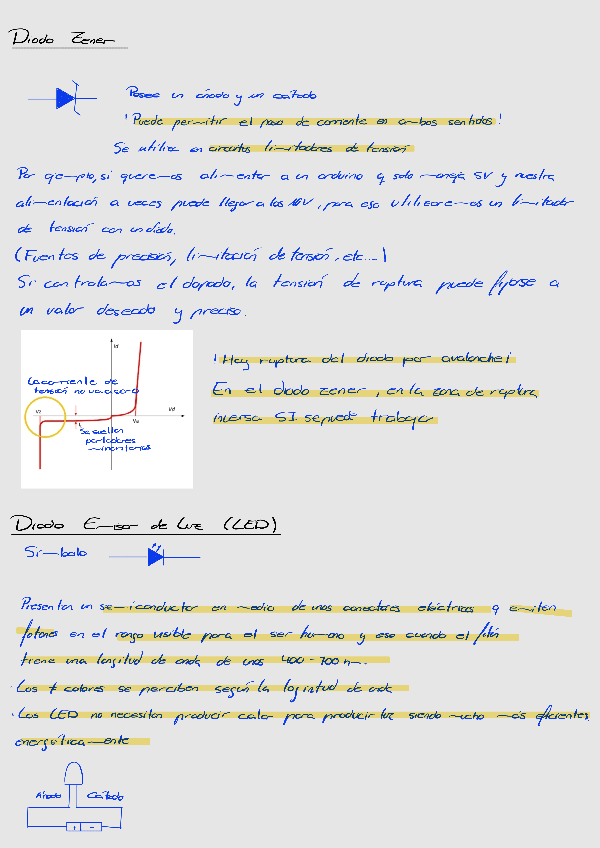 Diodo Zener
Posee un ánodo y un cátodo
¡Puede permitir el paso de corriente en ambos sentidos!
Se utiliza en circuitos limitadores de tensión
Por ejemplo, si queremos alimentar a un arduino q solo maneja 5V y nuestra
alimentación a veces puede llegar a los V, para eso utilizaremos un limitador
de tensión con un diodo.
(Fuentos de precisión, limitación de tensión, etc...)
Si controlamos el dopado, la tensión de ruptura puede fijarse a
un valor deseado y preciso.
Id
La corriente de
tensión no va a
Vz
Vd
Vu
Se suelen
portadores
minoritarios
¡Hay ruptura del diodo por avalancha!
En el diodo zener, en la zona de ruptura
inversa SI se puede trabajar
Diodo Emisor de Luz (LED)
Símbolo
Presentan un semiconductor en medio de unos conectores eléctricos q emiten
fotones en el rango visible para el ser humano y eso cuando el fotón
tiene una longitud de onda de unos 400-700 nm.
· Los ≠ colores se perciben según la logintud de onda
· Los LED no necesitan producir calor para producir luz siendo mucho más eficientes
energéticamente
Ánodo Cátodo
+ -